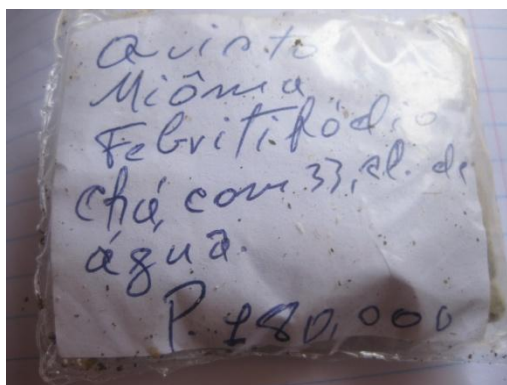 Quisto
Miôma
Febritifódio
chá, com 33, cl. de
água.
P. 180,000